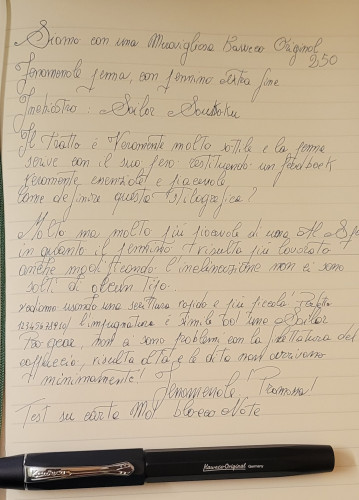 Siamo con una Meravigliosa Kaweco Original
250
Fenomenale penna, con pennino extra fine
Inchiostro: Sailor Souboku
Il tratto è veramente molto sottile e la penna
scrive con il suo peso restituendo un feedback
veramente essenziale e piacevole
Come definire questa stilografica?
Molto ma molto più piacevole di una Al S
in quanto il pennino risulta più lavorato
anche modificando l'inclinazione non ci sono
salti di alcun tipo.
vediamo usando una scrittura rapida e più piccola.
1234567890 l'impugnatura è simile ad una Sailor
Pro gear, non ci sono problemi con la filettatura del
cappuccio, risulta alta e le dita non arrivano
minimamente! Fenomenale! Promossa!
Test su carta blocco Note
Kaweco Original Germany